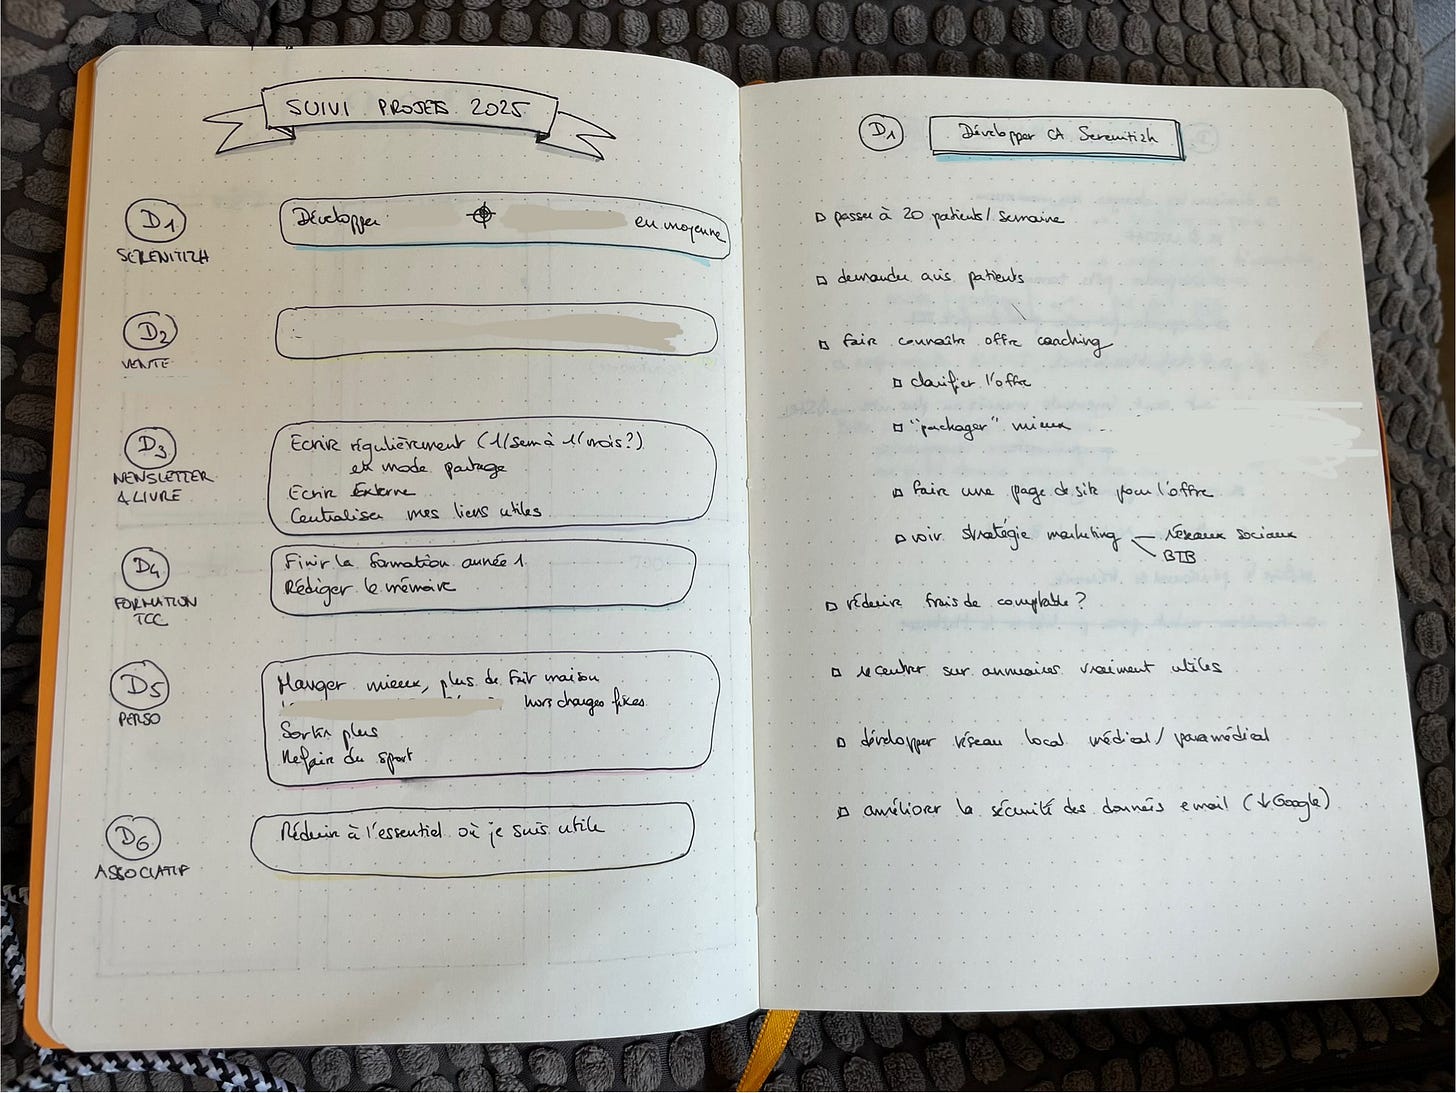 SUIVI PROJETS 2025
D1
SERENITIZH
Développer en moyenne
D2
VENTE
D3
NEWSLETTER
& LIVRE
Ecrire régulièrement (1/sem à 1/mois?)
et mode partage
Ecrire Externe
Centraliser mes liens utiles
D4
FORMATION
TCC
Finir la formation année 1
Rédiger le mémoire
D5
PERSO
Manger mieux, plus de fait maison
hors charges fixes
Sortir plus
Refaire du sport
D6
ASSOCIATIF
Réduire à l'essentiel où je suis utile
D1
Développer CA Serenitizh
passer à 20 patients/semaine
demander avis patients
faire connaître offre coaching
clarifier l'offre
"packager" mieux
faire une page de site pour l'offre
voir stratégie marketing
réseaux sociaux
BTB
réduire frais de comptable ?
recentrer sur annuaires vraiment utiles
développer réseau local médical/paramédical
améliorer la sécurité des données email (↓Google)